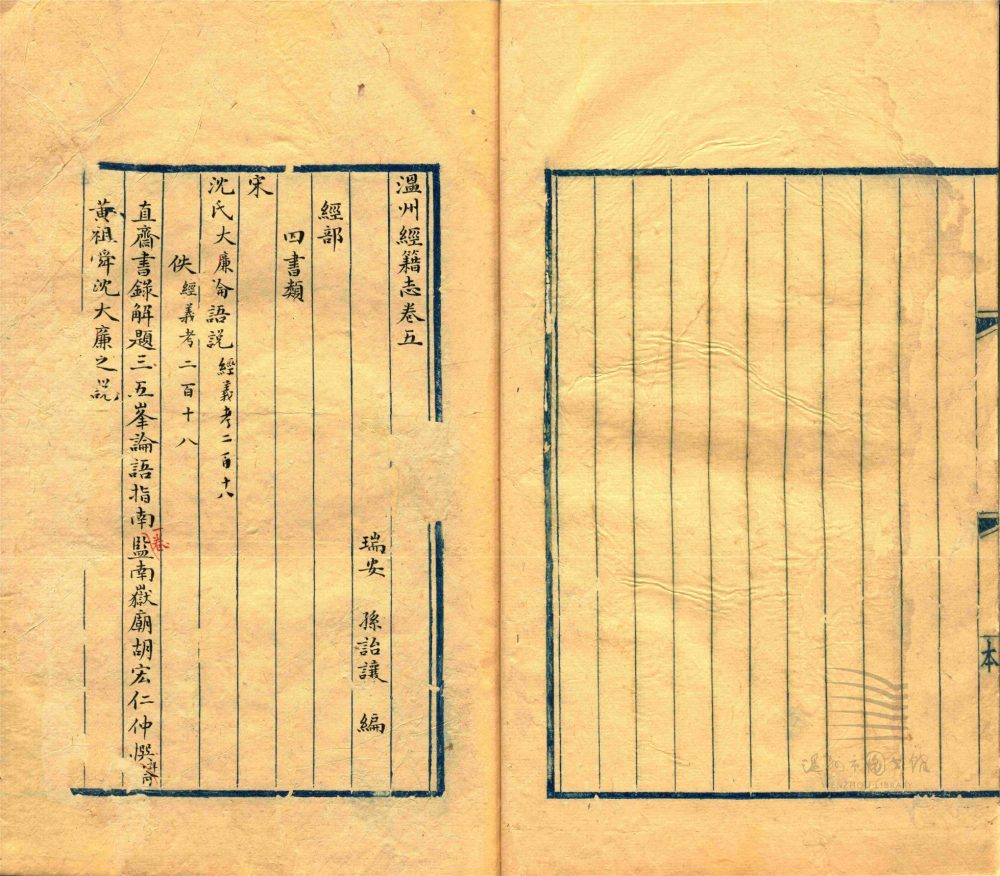 溫州經籍志卷五
瑞安 孫詒讓 編
經部
四書類
宋
沈氏大廉論語說經義考二百十八
佚經義考二百十八
直齋書錄解題三五峯論語指南一卷監南嶽廟胡宏仁仲撰
黃祖舜沈大廉之說
本
溫州市圖书館
WENZHOU LIBRARY